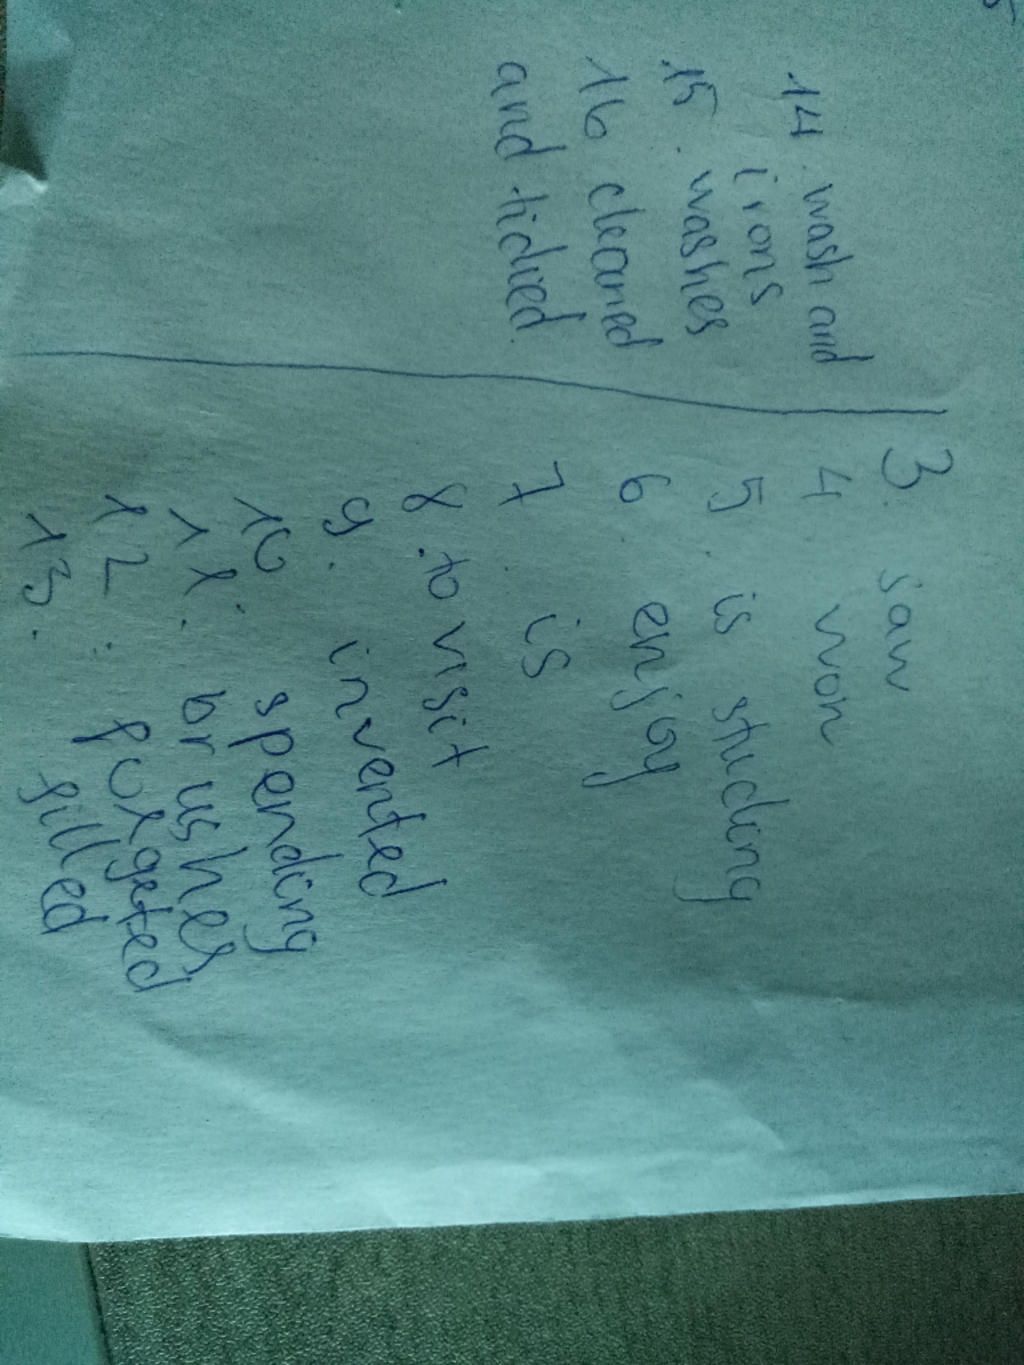 3. saw
4 won
5. is studing
6. enjoy
7. is
8. to visit
9. invented
10. spending
11. brushes
12. forgeted
13. filled
14. wash and
irons
15. washes
16 cleaned
and tidied